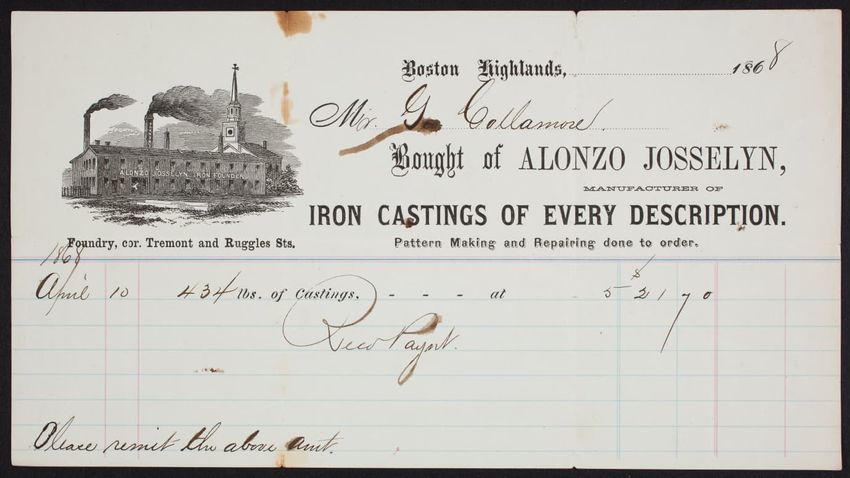 Boston Highlands, 1868
Mr. G. Collamore.
Bought of ALONZO JOSSELYN,
MANUFACTURER OF
IRON CASTINGS OF EVERY DESCRIPTION.
Pattern Making and Repairing done to order.
ALONZO JOSSELYN, IRON FOUNDER
Foundry, cor. Tremont and Ruggles Sts.
1868
April 10 434 lbs. of Castings. - - - at 5 $ 21 70
Recd Paymt.
Please remit the above amt.